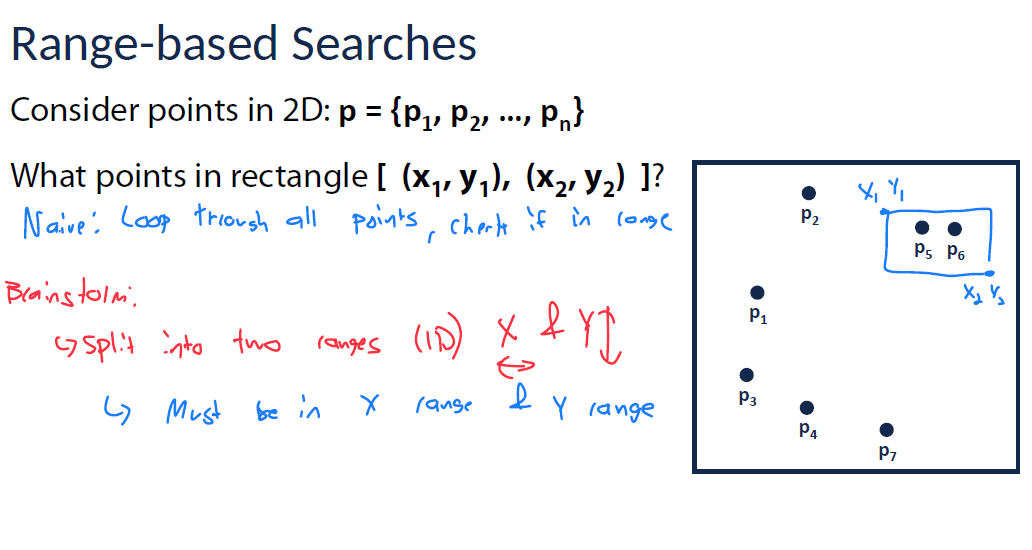 Range-based Searches
Consider points in 2D: p = {p₁, p₂, ..., pₙ}
What points in rectangle [ (x₁, y₁), (x₂, y₂) ]?
Naive: Loop through all points, check if in range
Brainstorm:
↳ split into two ranges (1D) X & Y
↳ Must be in X range & Y range
X₁ Y₁
p₂
p₅ p₆
X₂ Y₂
p₁
p₃
p₄
p₇